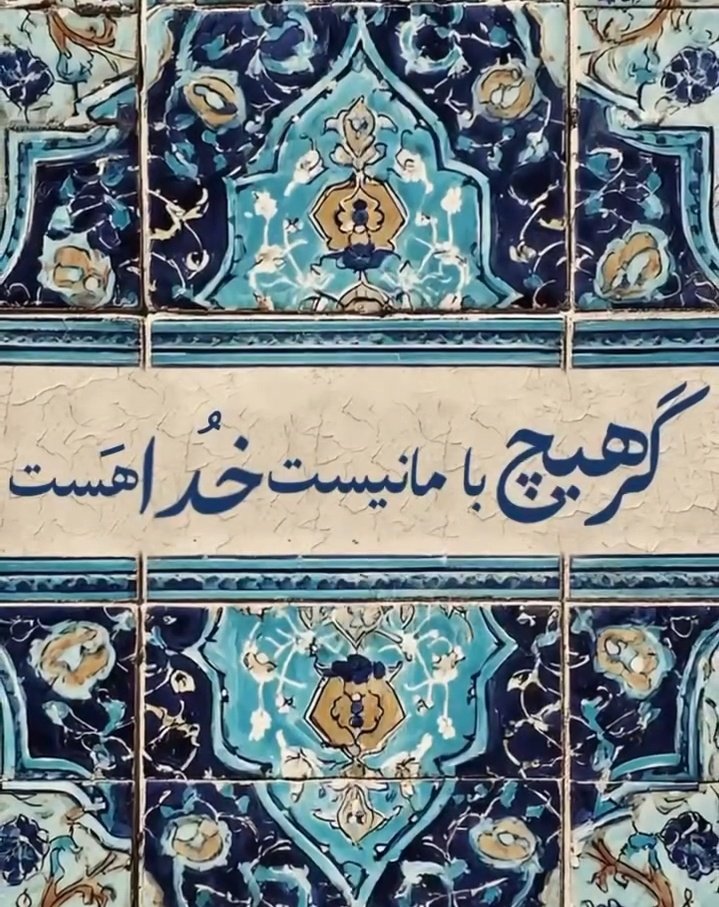 گر هیچ با ما نیست خُدا هَست